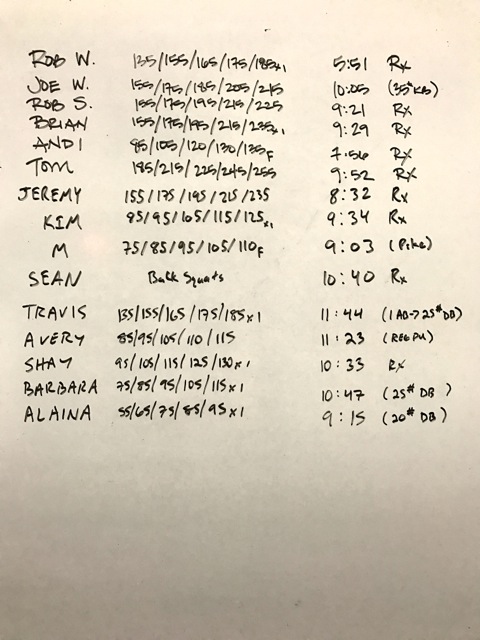 ROB W. 135/155/165/175/185x1 5:51 Rx
JOE W. 155/175/185/205/215 10:05 (35# KB)
ROB S. 155/175/195/215/225 9:21 Rx
BRIAN 155/175/195/215/235x1 9:29 Rx
ANDI 85/105/120/130/135F 7:56 Rx
TOM 185/215/225/245/255 9:52 Rx
JEREMY 155/175/195/215/235 8:32 Rx
KIM 85/95/105/115/125x1 9:34 Rx
M 75/85/95/105/110F 9:03 (Pike)
SEAN Back Squats 10:40 Rx
TRAVIS 135/155/165/175/185x1 11:44 (1 AB->25# DB)
AVERY 85/95/105/110/115 11:23 (REG PU)
SHAY 95/105/115/125/130x1 10:33 Rx
BARBARA 75/85/95/105/115x1 10:47 (25# DB)
ALAINA 55/65/75/85/95x1 9:15 (20# DB)